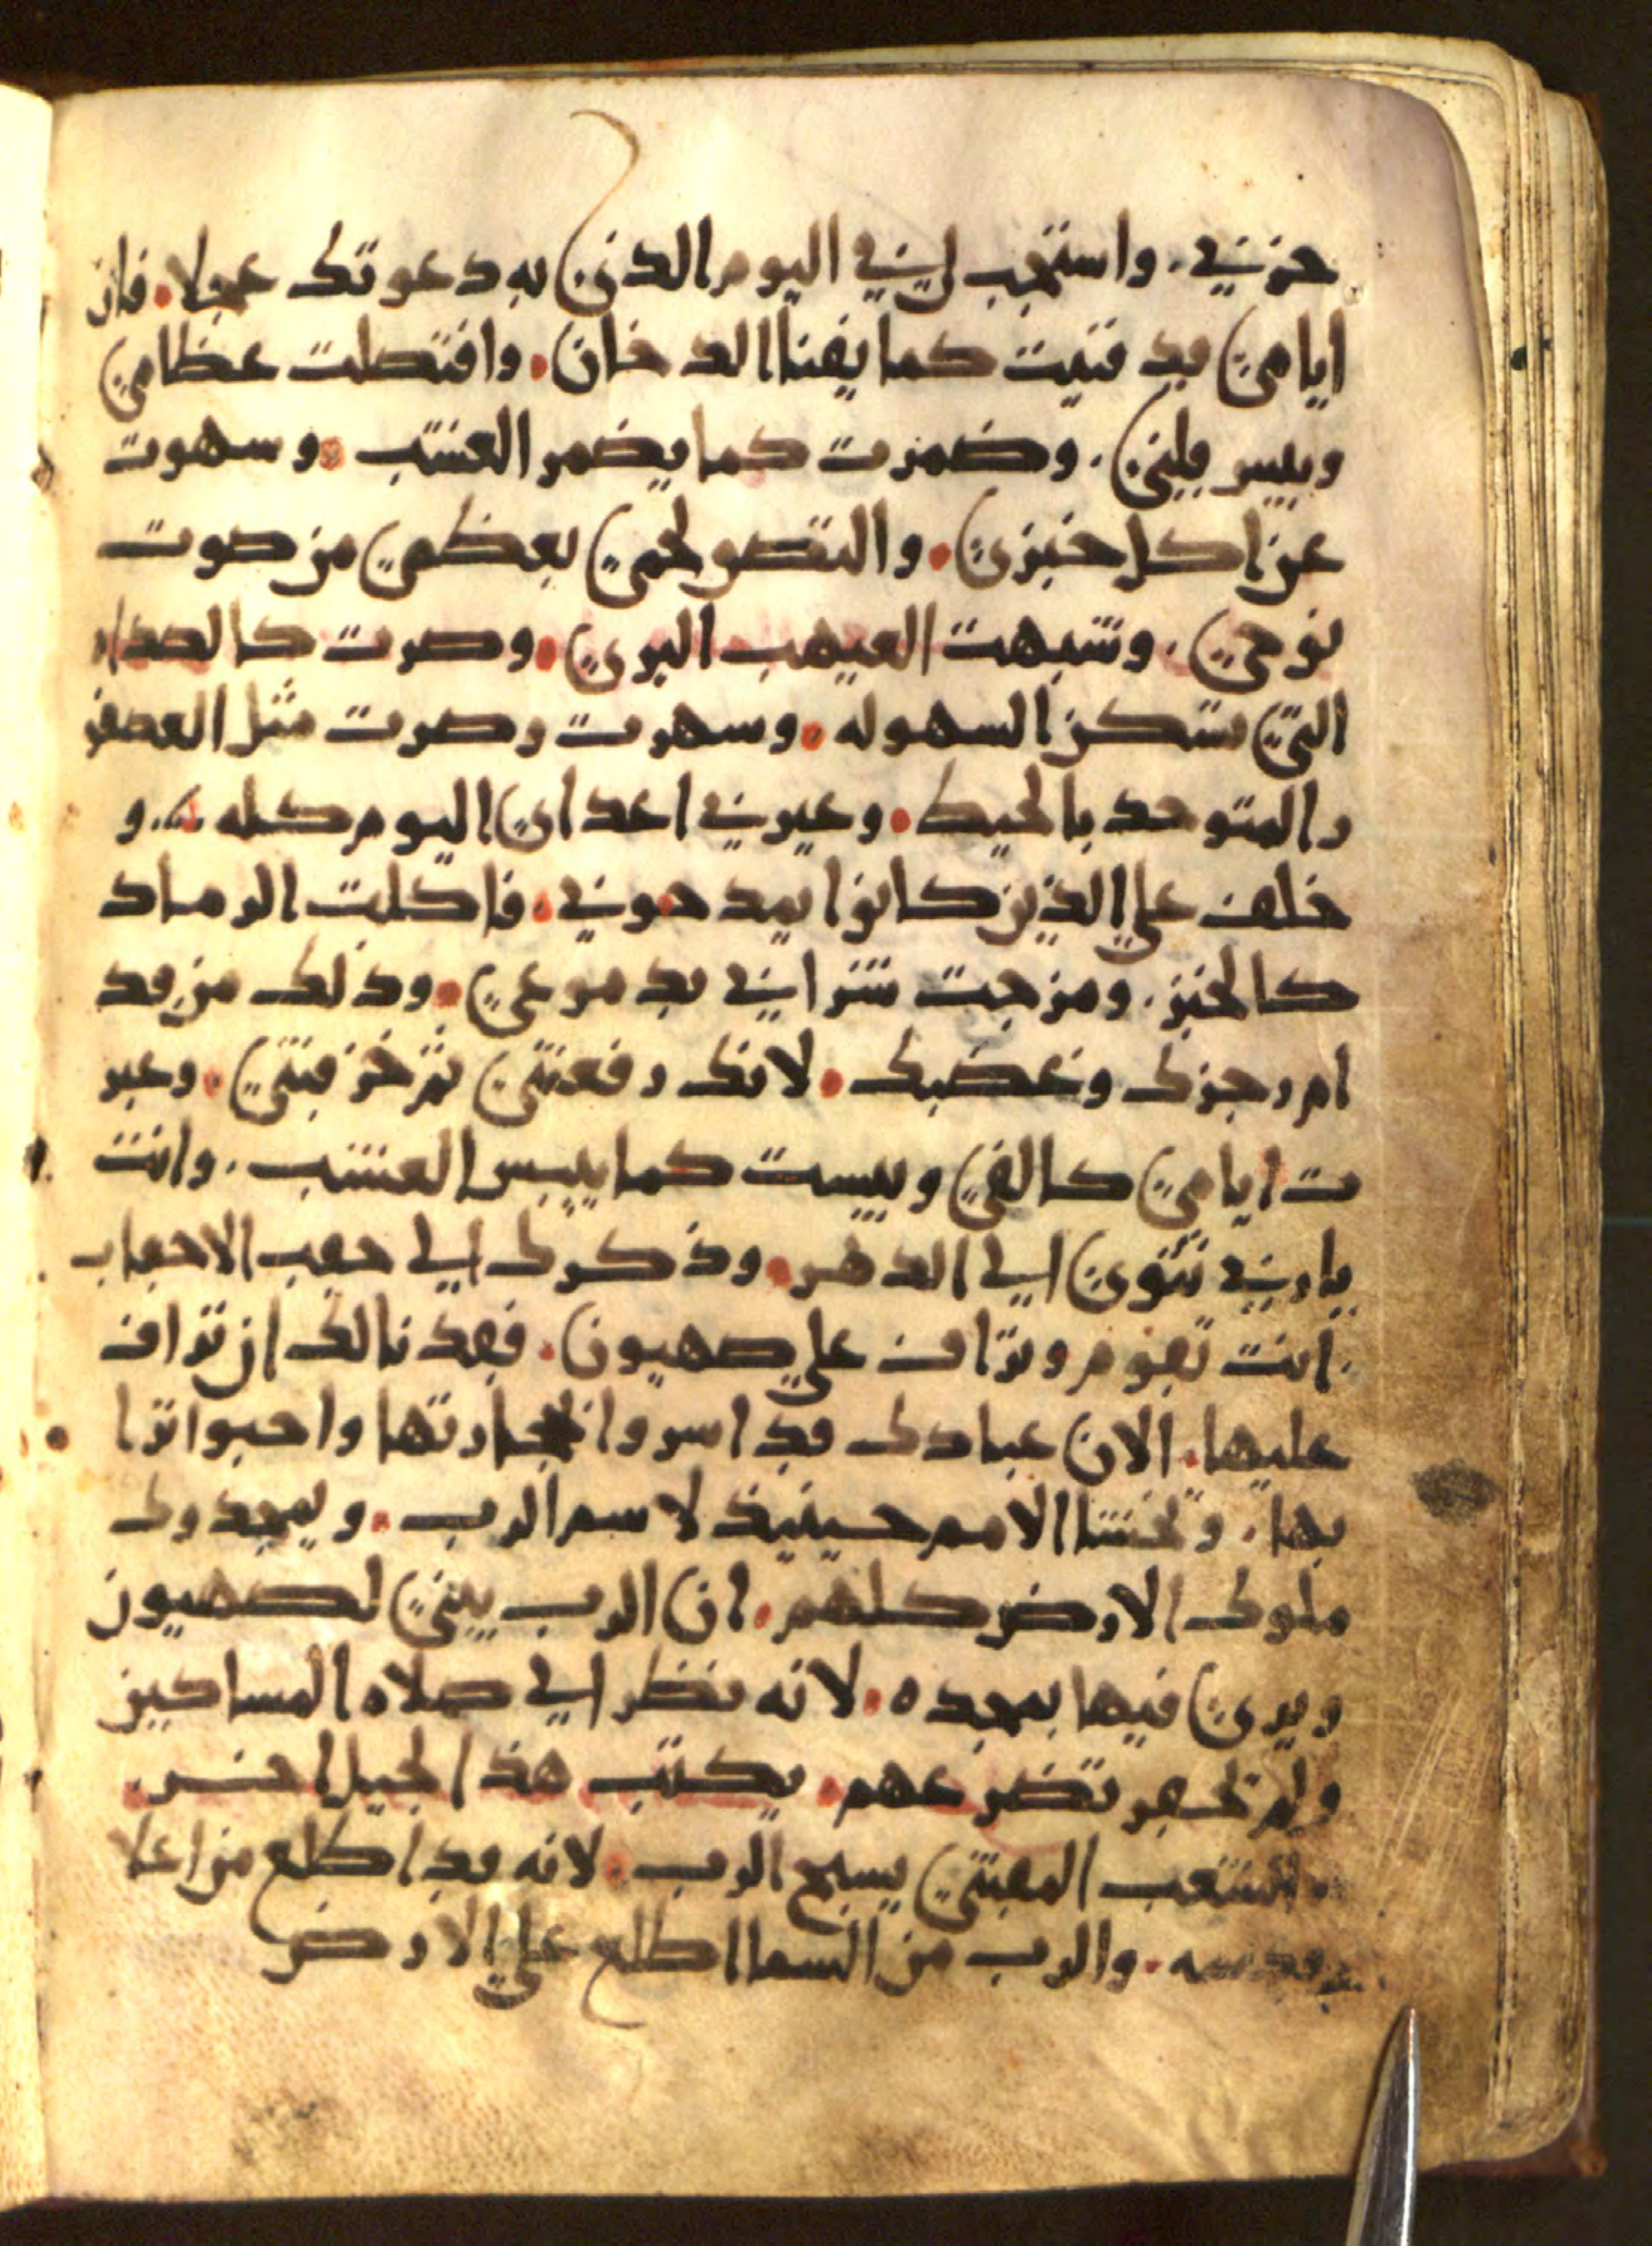 حزني . واستجب لي في اليوم الذي به دعوتك عجلا . فان
ايامي قد فنيت كما يفنا الدخان . واقتصلت عظامي
ويبس قلبي . وضمرت كما يضمر العشب . وسهوت
عن اكل خبزي . والتصق لحمي بعظمي من صوت
نوحي . وشبهت العيهب البري . وصرت كالصداه
التي تسكن السهوله . وسهرت وصرت مثل العصفو
ر المتوحد بالحيط . وعيرني اعداي اليوم كله . و
خلف علي الذين كانوا يمدحوني . فاكلت الرماد
كالخبز . ومزجت شرابي بدموعي . وذلك من قد
ام رجزك وغضبك . لانك رفعتني ثم خزقتني . وعبر
ت ايامي كالفي ويبست كما ييبس العشب . وانت
يا ربي تتوي الي الدهر . وذكرك الي حقب الاحقاب
. انت تقوم وتراف علي صهيون . فقد نا لك ان تراف
عليها . الان عبادك قد اسروا حجارتها واحبوا ترا
بها . وتخشا الامم حينيذ لاسم الرب . ويمجدوك
ملوك الارض كلهم . ان الرب يبني لصهيون
ويري فيها بمجده . لانه نظر الي صلاه المساكين
ولم تحقر تضرعهم . يكتب هذا لجيل اخر .
الشعب المقتني يسبح الرب . لانه قد اطلع من اعلا
قدسه . والرب من السما اطلع علي الارض